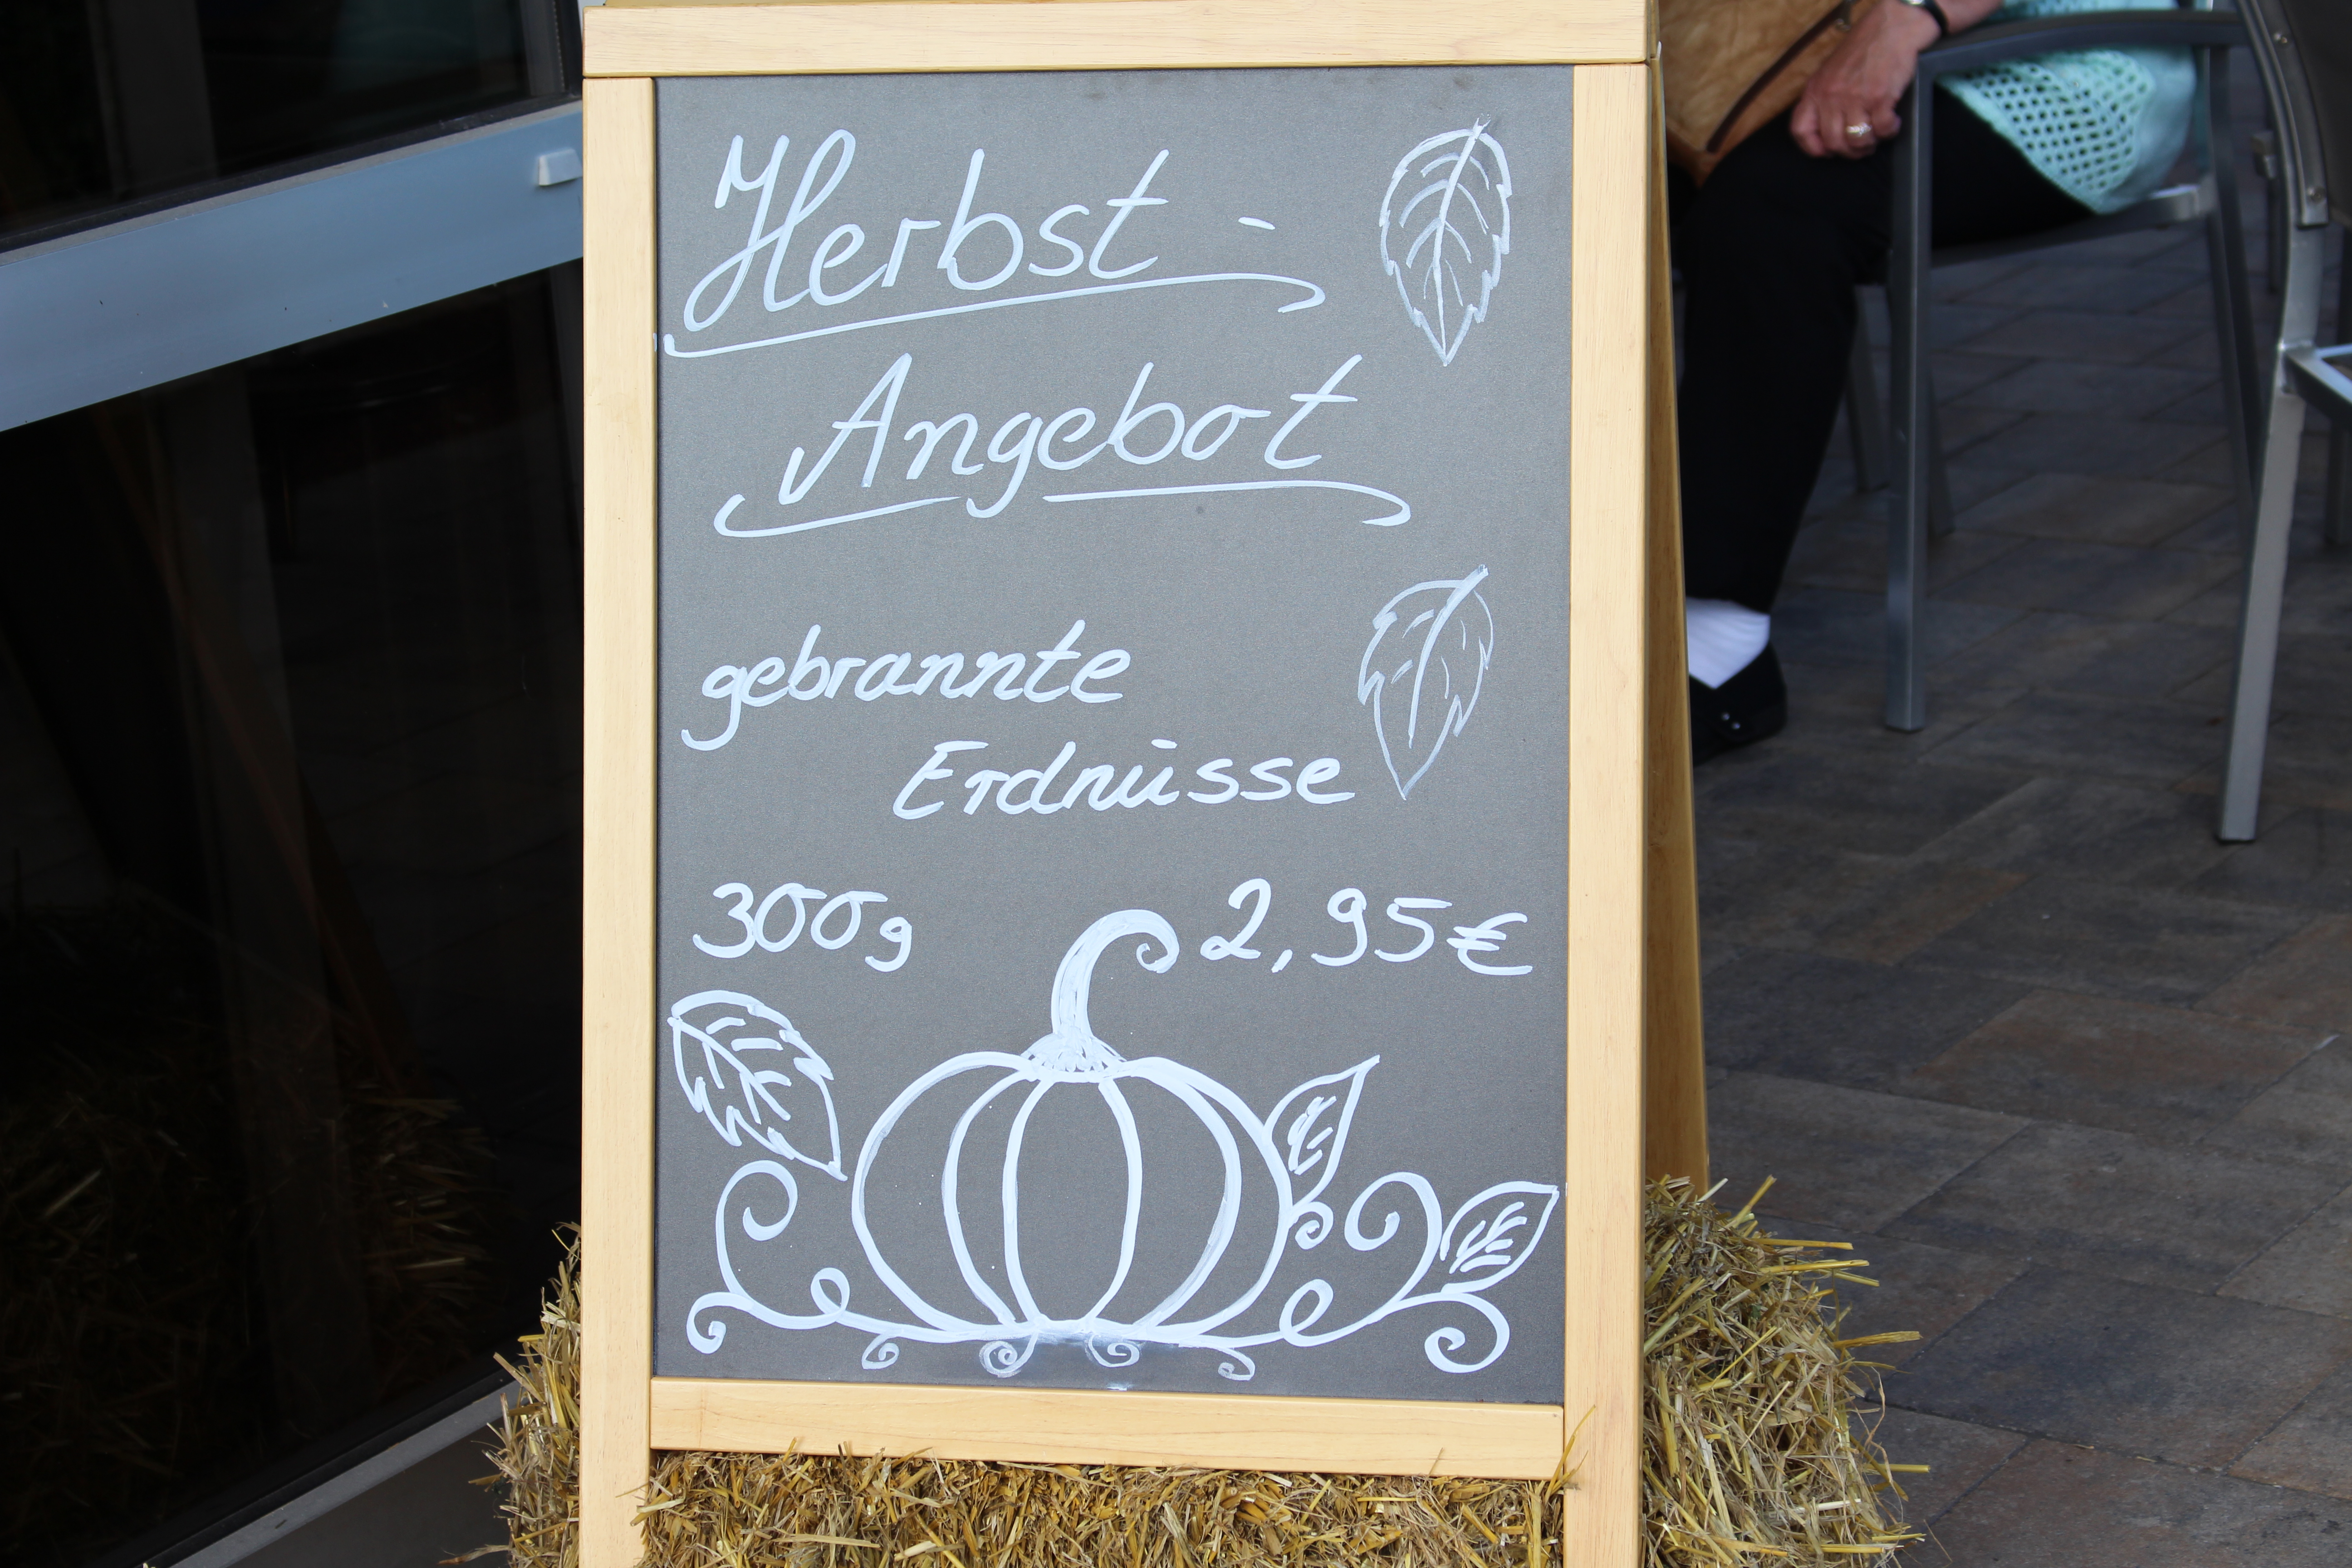 Herbst-
Angebot
gebrannte
Erdnüsse
300g 2,95€